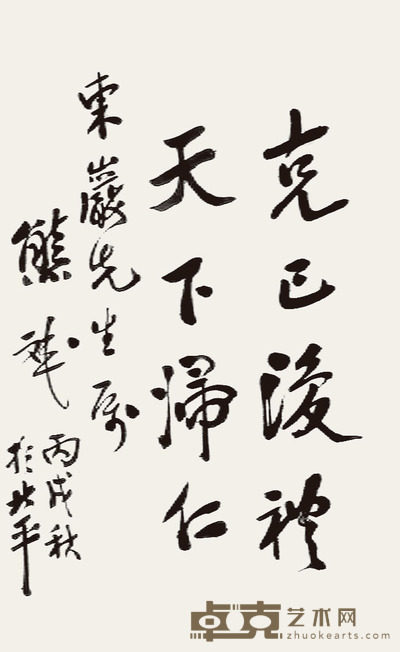 克己復禮
天下歸仁
東巖先生属
熊斌
丙戌秋
於北平
卓克艺术网
zhuokearts.com